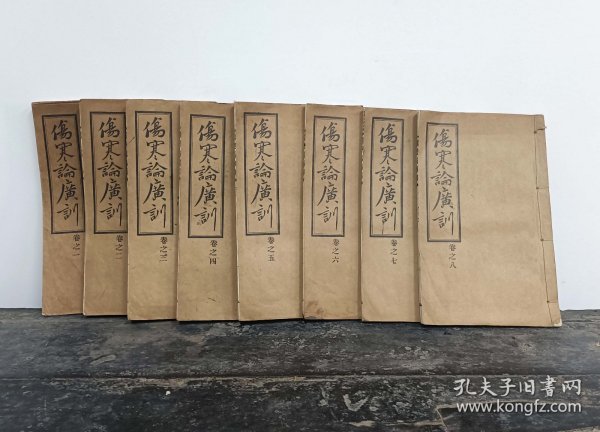 傷寒論廣訓
卷之一
傷寒論廣訓
卷之二
傷寒論廣訓
卷之三
傷寒論廣訓
卷之四
傷寒論廣訓
卷之五
傷寒論廣訓
卷之六
傷寒論廣訓
卷之七
傷寒論廣訓
卷之八
孔夫子旧書网
www.kongfz.com